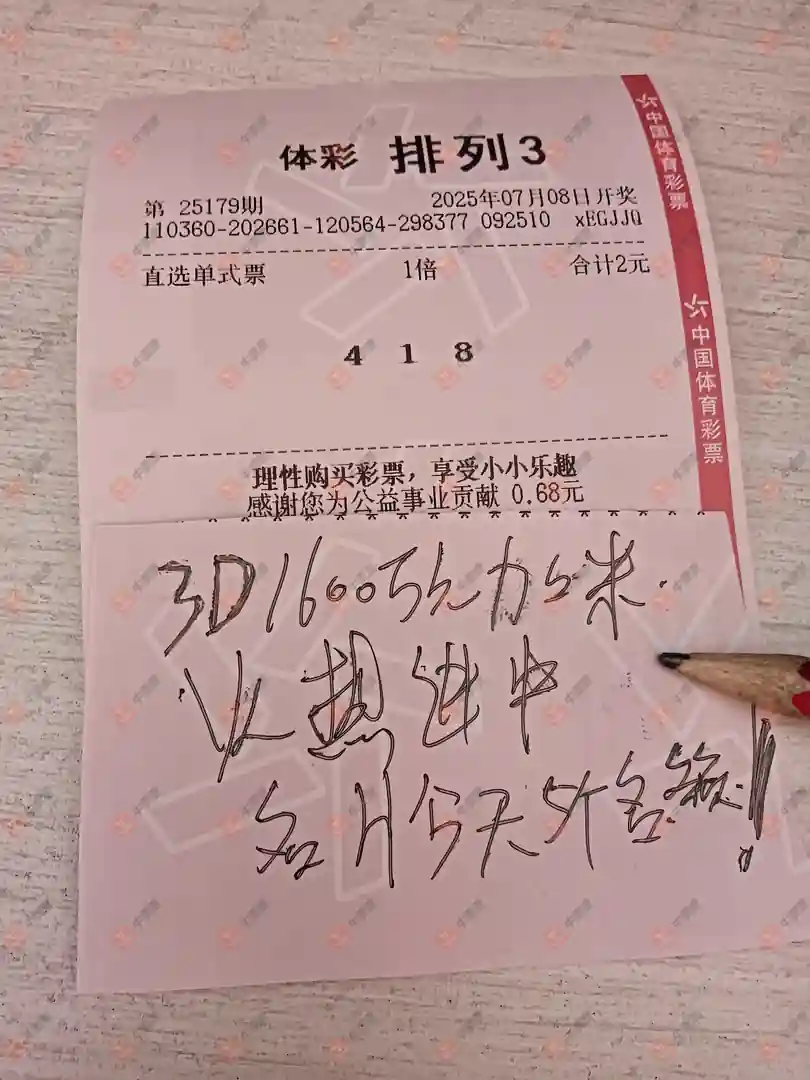 体彩 排列3
第 25179期 2025年07月08日开奖
110360-202661-120564-298377 092510 xEGJJQ
直选单式票 1倍 合计2元
4 1 8
理性购买彩票，享受小小乐趣
感谢您为公益事业贡献 0.68元
中国体育彩票
中国体育彩票
3D1600万元加公米.
火热继中
名片今天5个名额!